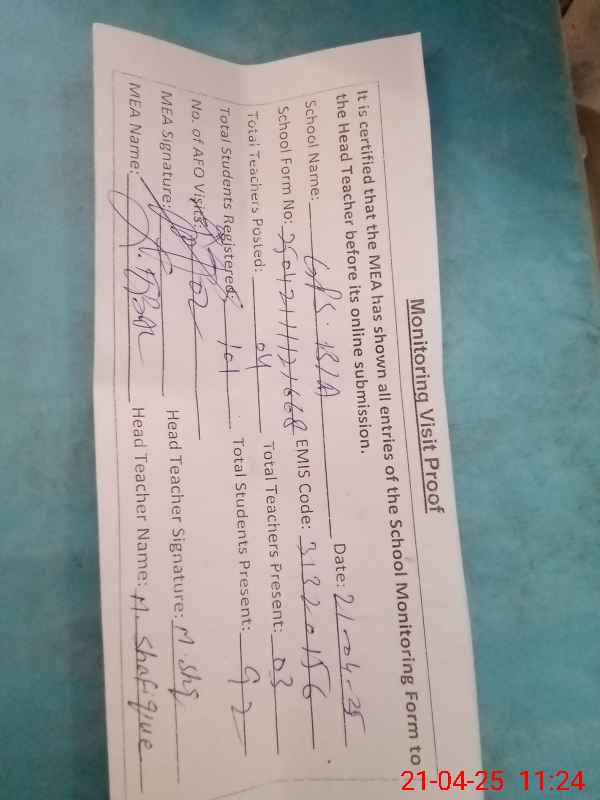 Monitoring Visit Proof
It is certified that the MEA has shown all entries of the School Monitoring Form to
the Head Teacher before its online submission.
School Name: GPS. 18/A Date: 21-04-25
School Form No: 250421111121668 EMIS Code: 31320156
Total Teachers Posted: 04 Total Teachers Present: 03
Total Students Registered: 101 Total Students Present: 92
No. of AFO Visits: 02
MEA Signature: Head Teacher Signature: M. Shf
MEA Name: Head Teacher Name: M. Shafique
21-04-25 11:24